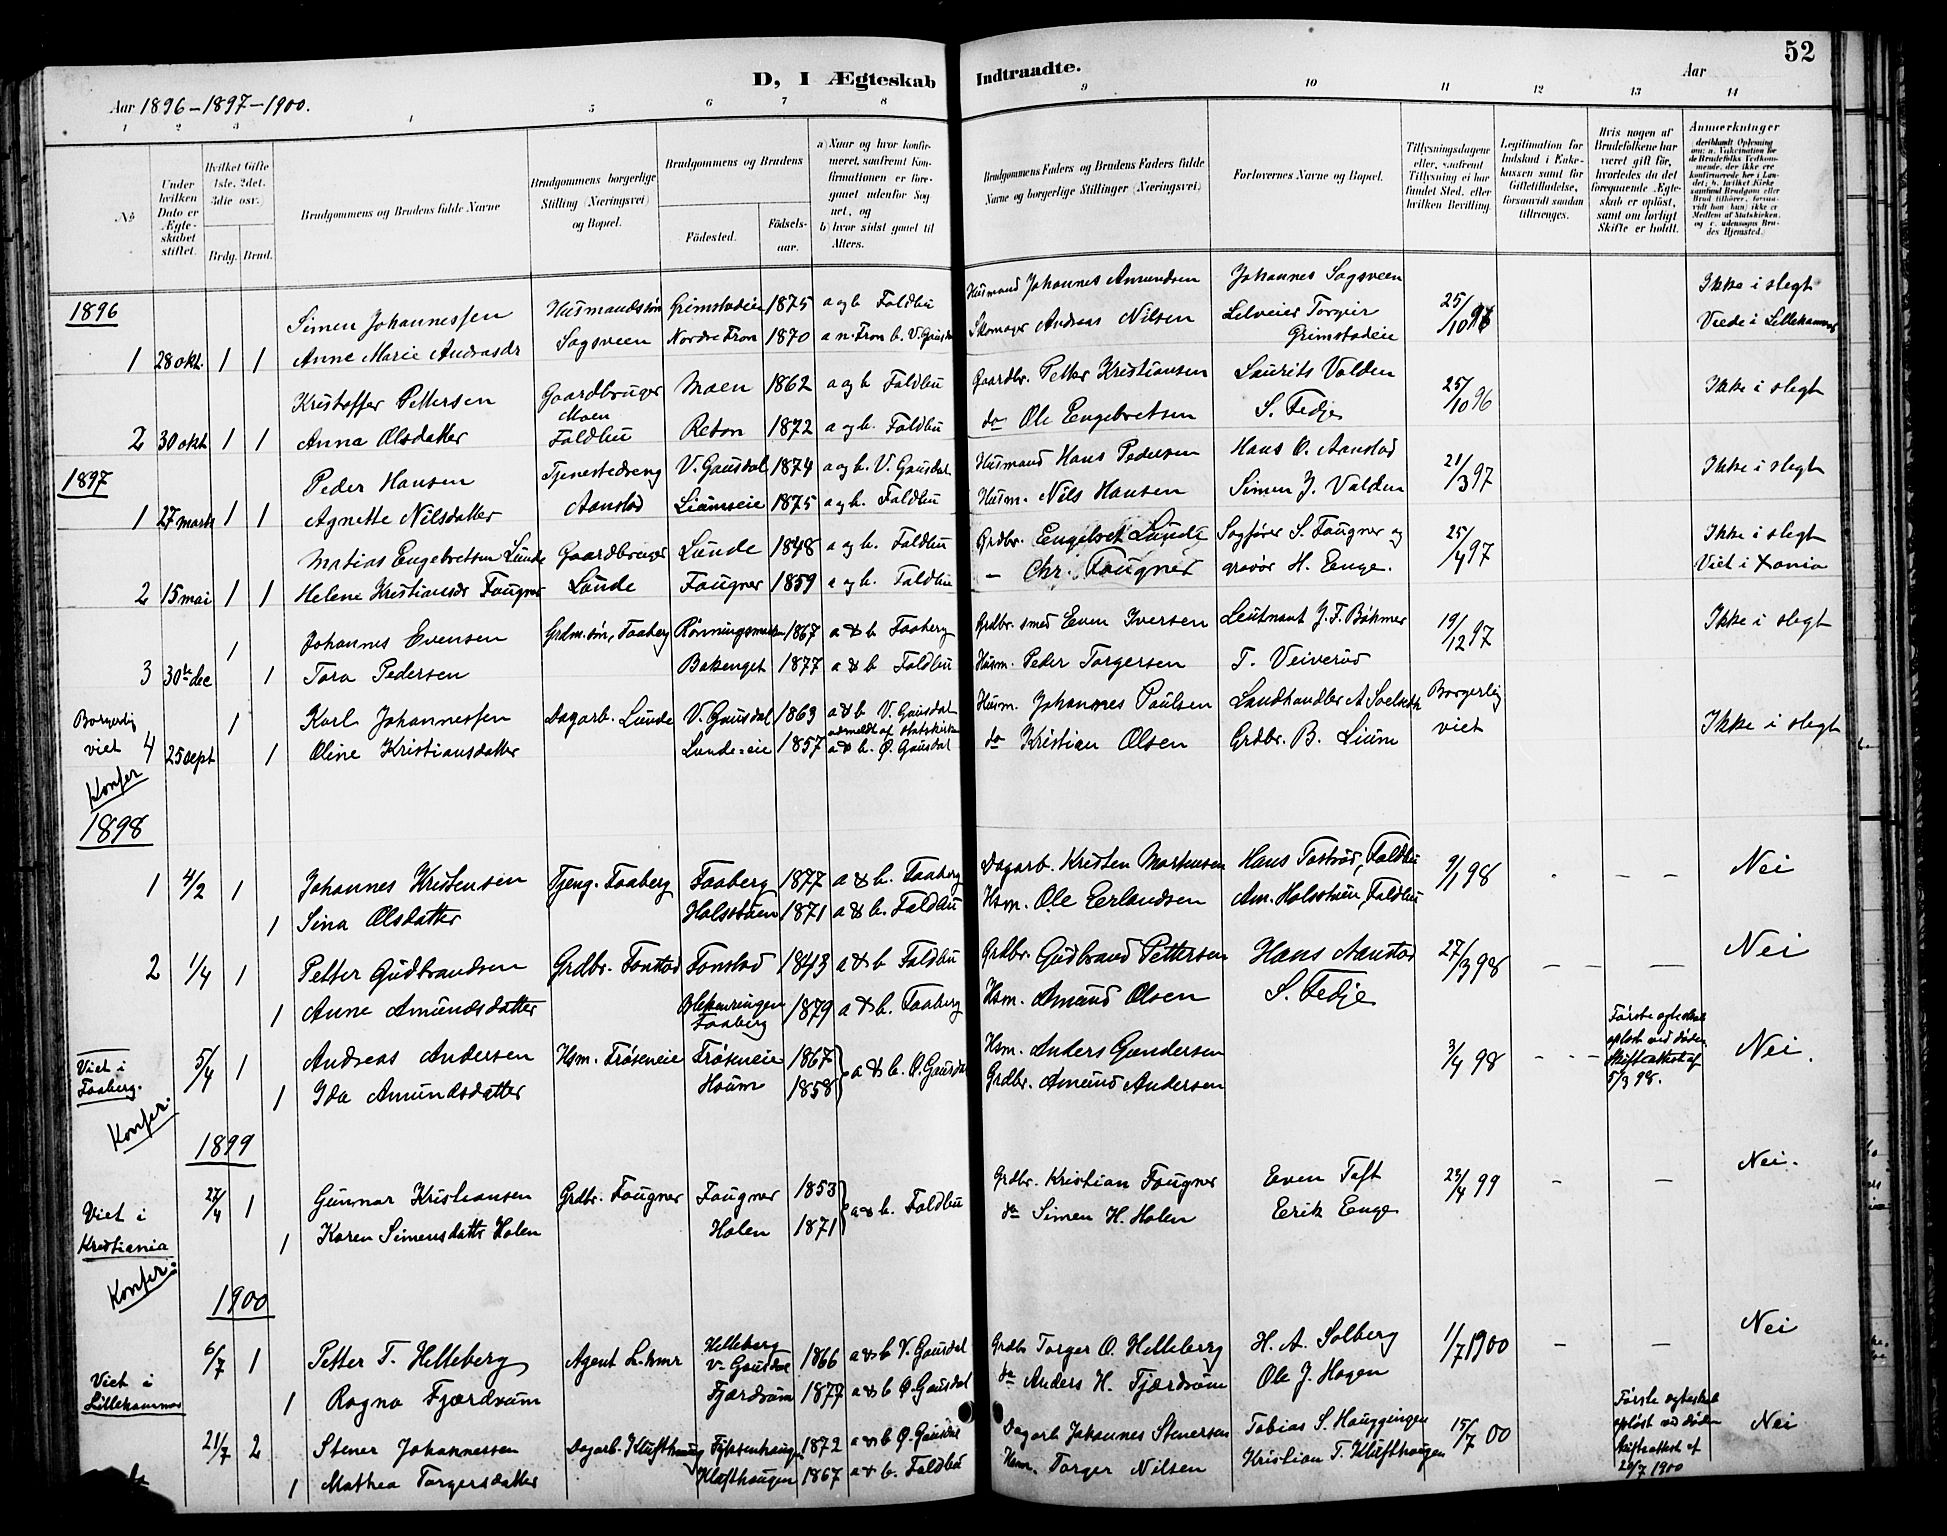 52
D, I Ægteskab Indtraadte.
Aar 1896–1897–1900. Aar
1 2 3 4 5 6 7 8 9 10 11 12 13 14
No.
Under hvilken Dato er Ægteskabet stiftet.
Hvilket Gifte 1ste, 2det, 3die osv.
Brdg. Brud.
Brudgommens og Brudens fulde Navne
Brudgommens borgerlige Stilling (Næringsvei) og Bopæl.
Brudgommens og Brudens
Fødested. Fødselsaar.
a) Naar og hvor konfirmeret, saafremt Konfirmationen er foregaaet udenfor Sognet, og
b) hvor sidst gaaet til Alters.
Brudgommens Faders og Brudens Faders fulde Navne og borgerlige Stillinger (Næringsvei)
Forlovernes Navne og Bopæl.
Tillysningsdagene eller, saafremt Tillysning ei har fundet Sted, efter hvilken Bevilling.
Legitimation for Indskud i Enkekassen samt for Giftetilladelse, forsaavidt saadan tiltrænges.
Hvis nogen af Brudefolkene har været gift før, hvorledes da det foregaaende Ægteskab er opløst, samt om lovligt Skifte er holdt.
Anmerkninger
1896
Simen Johannessen Husmandssøn Grimstadeie 1875 a og b Foldbu Husmand Johannes Amundsen Johannes Sagsveen 25/10 96 Ikke i slegt
1 28 okt. 1 1 Anne Marie Andrasdr Sagsveen Nordre Fron 1870 a n. Fron b. V. Gausdal Skomager Andreas Nilsen Torgier Grimstadeie Viede i Lillehammer
Kristoffer Pettersen Gaardbruger Moen 1862 a og b Foldbu Gaardbr. Petter Kristiansen Laurits Valden 25/10 96 Ikke i slegt
2 30 okt 1 1 Anna Olsdatter Moen Foldbu 1872 a og b. Foldbu do Ole Engebretsen S. Fedje
1897
Peder Hansen Tjenestedreng V. Gausdal 1874 a og b. V. Gausdal Husmand Hans Pedersen Hans O. Aanstad 21/3 97 Ikke i slegt
1 27 marts 1 1 Agnette Nilsdatter Aanstad Liumseie 1875 a og b. Foldbu Husm. Nils Hansen Simen J. Valden
Matias Engebretsen Lunde Gaardbruger Lunde 1848 a og b. Foldbu Grdbr. Engebret Lunde Sagfører S. Fougner og 25/4 97 Ikke i slegt
2 15 mai 1 1 Helene Kristiansdr Fougner Lunde Fougner 1859 a og b. Foldbu – Chr. Fougner H. Enge. Viet i Xania
Johannes Evensen Grdm. søn, Faaberg 1867 a & b Faaberg Grdbr. smed Even Iversen Leutnant J. F. Bøhmer 19/12 97 Ikke i slegt
3 30te dec 1 1 Tora Pedersen Bakenget 1877 a & b Foldbu Husm. Peder Torgersen T. Veiverud
Borgerlig viet 4 25 sept 1 1 Karl Johannessen Dagarb. Lunde V. Gausdal 1863 a & b V. Gausdal Husm. Johannes Paulsen Landhandler A Borgerlig viet Ikke i slegt
Oline Kristiansdatter Lunde-eie 1857 udmeldt af statskirken a & b. Ø. Gausdal do Kristian Olsen Grdbr. B. Lium
Konfer
1898
1 4/2 1 Johannes Kristensen Tjeng. Faaberg Faaberg 1877 a & b. Faaberg Dagarb. Kristen Mortensen Hans Tostrød, Foldbu 9/1 98 - – – Nei
1 Sina Olsdatter Holsstuen 1871 a & b. Foldbu Hsm. Ole Erlandsen Am. Holsstuen, Foldbu
2 1/4 1 Petter Gudbrandsen Grdbr. Fonstad Fonstad 1843 a & b Foldbu Grdbr Gudbrand Pettersen Hans Aanstad 27/3 98 – – — Nei
1 Anne Amundsdatter Faaberg 1879 a & b. Faaberg Hsm. Amund Olsen S. Fedje
Viet i Faaberg. 5/4 1 Andreas Andersen Hsm. Frøseneie Frøseneie 1867 a & b. Ø. Gausdal Hsm. Anders Gundersen 3/4 98 - - - Første egteskab opløst ved døden Skifteattest af 5/3 98. Nei.
1 Ida Amundsdatter Houm 1858 Grdbr. Amund Andersen
Konfer.
1899
Viet i Kristiania 27/4 1 Gunnar Kristiansen Grdbr. Fougner Fougner 1853 a & b. Foldbu Grdbr. Kristian Fougner Even Toft 23/4 99 – – Nei.
1 Karen Simensdattr Holen Holen 1871 do Simen H. Holen Erik Enge
Konfer:
1900
Viet i Lillehammer 6/7 1 Petter T. Helleberg Agent L-hmr Helleberg V. Gausdal 1866 a & b V. Gausdal Grdb Torger O. Helleberg H. A. Solberg 1/7 1900 – — Nei
1 Ragna Fjærdrum Fjærdrum 1877 a & b Ø. Gausdal do Anders H. Fjærdrum Ole J. Hagen
21/7 2 Stener Johannessen Dagarb. Klufthaug 1872 a & b Ø. Gausdal Dagarb Johannes Stenersen Tobias S. Hauggingen 15/7 00 Første egteskab opløst ved døden skifteattest af 20/7 1900 Nei
1 Mathea Torgersdatter Klufthaugen 1867 a & b. Foldbu Hsm. Torger Nilsen Kristian T. Klufthaugen